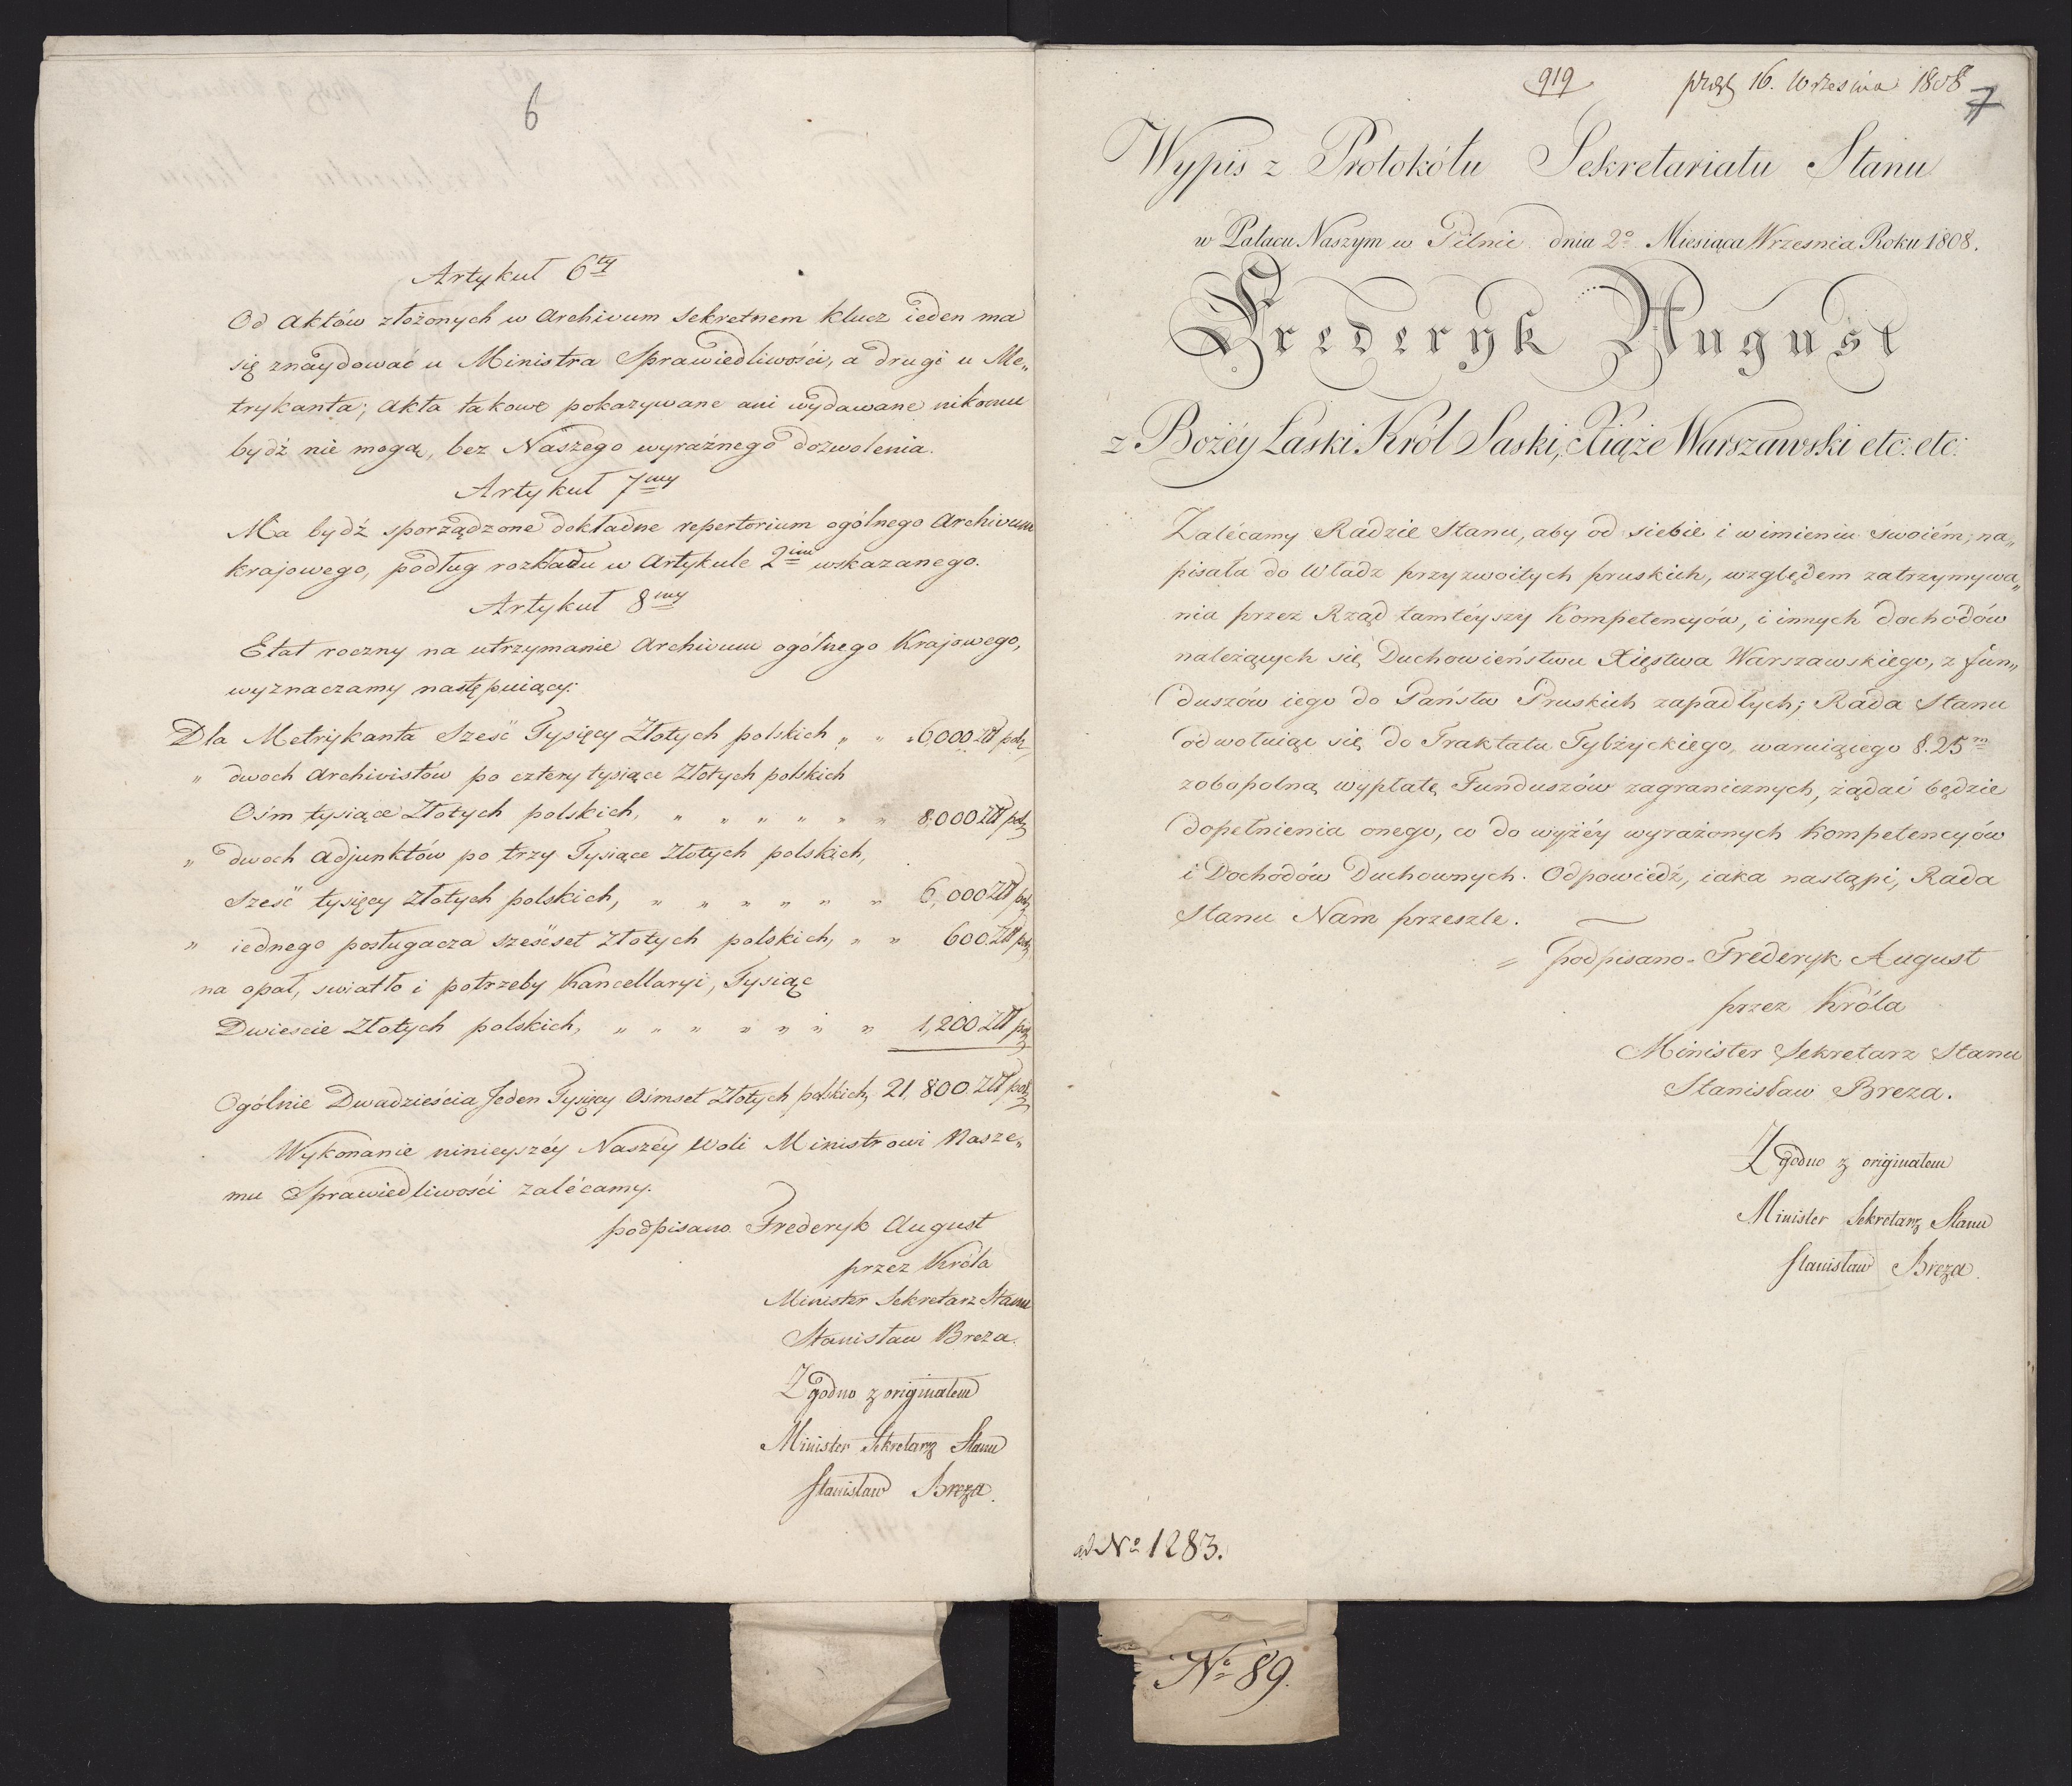 6
Artykuł 6ty
Od Aktów złożonych w Archivum sekretnem klucz ieden ma
się znaydować u Ministra Sprawiedliwości, a drugi u Me„
trykanta; Akta takowe pokazywane ani wydawane nikomu
bydź nie mogą, bez Naszego wyraźnego dozwolenia.
Artykuł 7my
Ma bydź sporządzone dokładne repertorium ogólnego Archivum
krajowego, podług rozkładu w Artykule 2im wskazanego.
Artykuł 8my
Etat roczny na utrzymanie Archivum ogólnego Krajowego,
wyznaczamy następuiący:
Dla Metrykanta Sześć Tysięcy Złotych polskich „ „ „ 6,000 Złł pol:
„ dwoch Archivistów po cztery tysiące Złotych polskich
Ośm tysiące Złotych polskich, „ „ „ „ „ „ 8,000 Złł pol:
„ dwoch Adjunktów po trzy Tysiące Złotych polskich,
Sześć tysięcy Złotych polskich, „ „ „ „ „ „ 6,000 Złł pol:
„ iednego posługacza sześćset Złotych polskich, „ „ 600 Złł pol:
na opał, swiatło i potrzeby Kancellaryi, Tysiąc
Dwieście Złotych polskich, „ „ „ „ „ „ „ 1,200 Złł pol:
Ogólnie Dwadzieścia Jeden Tysięcy Ośmset Złotych polskich, 21,800 Złł pol:
Wykonanie ninieyszéy Naszéy Woli Ministrowi Nasze„
mu Sprawiedliwości zalécamy.
podpisano Frederyk August
przez Króla
Minister Sekretarz Stanu
Stanisław Breza.
Zgodno z originałem
Minister Sekretarz Stanu
Stanisław Breza.
919 7
16. Września 1808
Wypis z Protokółu Sekretariatu Stanu
w Pałacu Naszym w Pilnic dnia 2o Miesiąca Wrzesnia Roku 1808.
Frederyk August
z Bożéy Łaski Król Saski, Xiąże Warszawski etc: etc:
Zalécamy Radzie Stanu, aby od siebie i w imieniu swoiém, na„
pisała do Władz przyzwoitych pruskich, względem zatrzymywa„
nia przez Rząd tamtéyszy Kompetencyów, i innych dochodów
należących się Duchowieństwu Xięstwa Warszawskiego, z fun„
duszów iego do Państw Pruskich zapadłych; Rada Stanu
odwołuiąc się do Traktatu Tylżyckiego, waruiącego §. 25m
zobopolną wypłatę Funduszów zagranicznych, żądać będzie
dopełnienia onego, co do wyżéy wyrażonych Kompetencyów
i Dochodów Duchownych. Odpowiedź, iaka nastąpi, Rada
Stanu Nam przeszle.
= podpisano = Frederyk August
przez Króla
Minister Sekretarz Stanu
Stanisław Breza.
Zgodno z originałem
Minister Sekretarz Stanu
Stanisław Breza.
ad No 1283.
No 89.